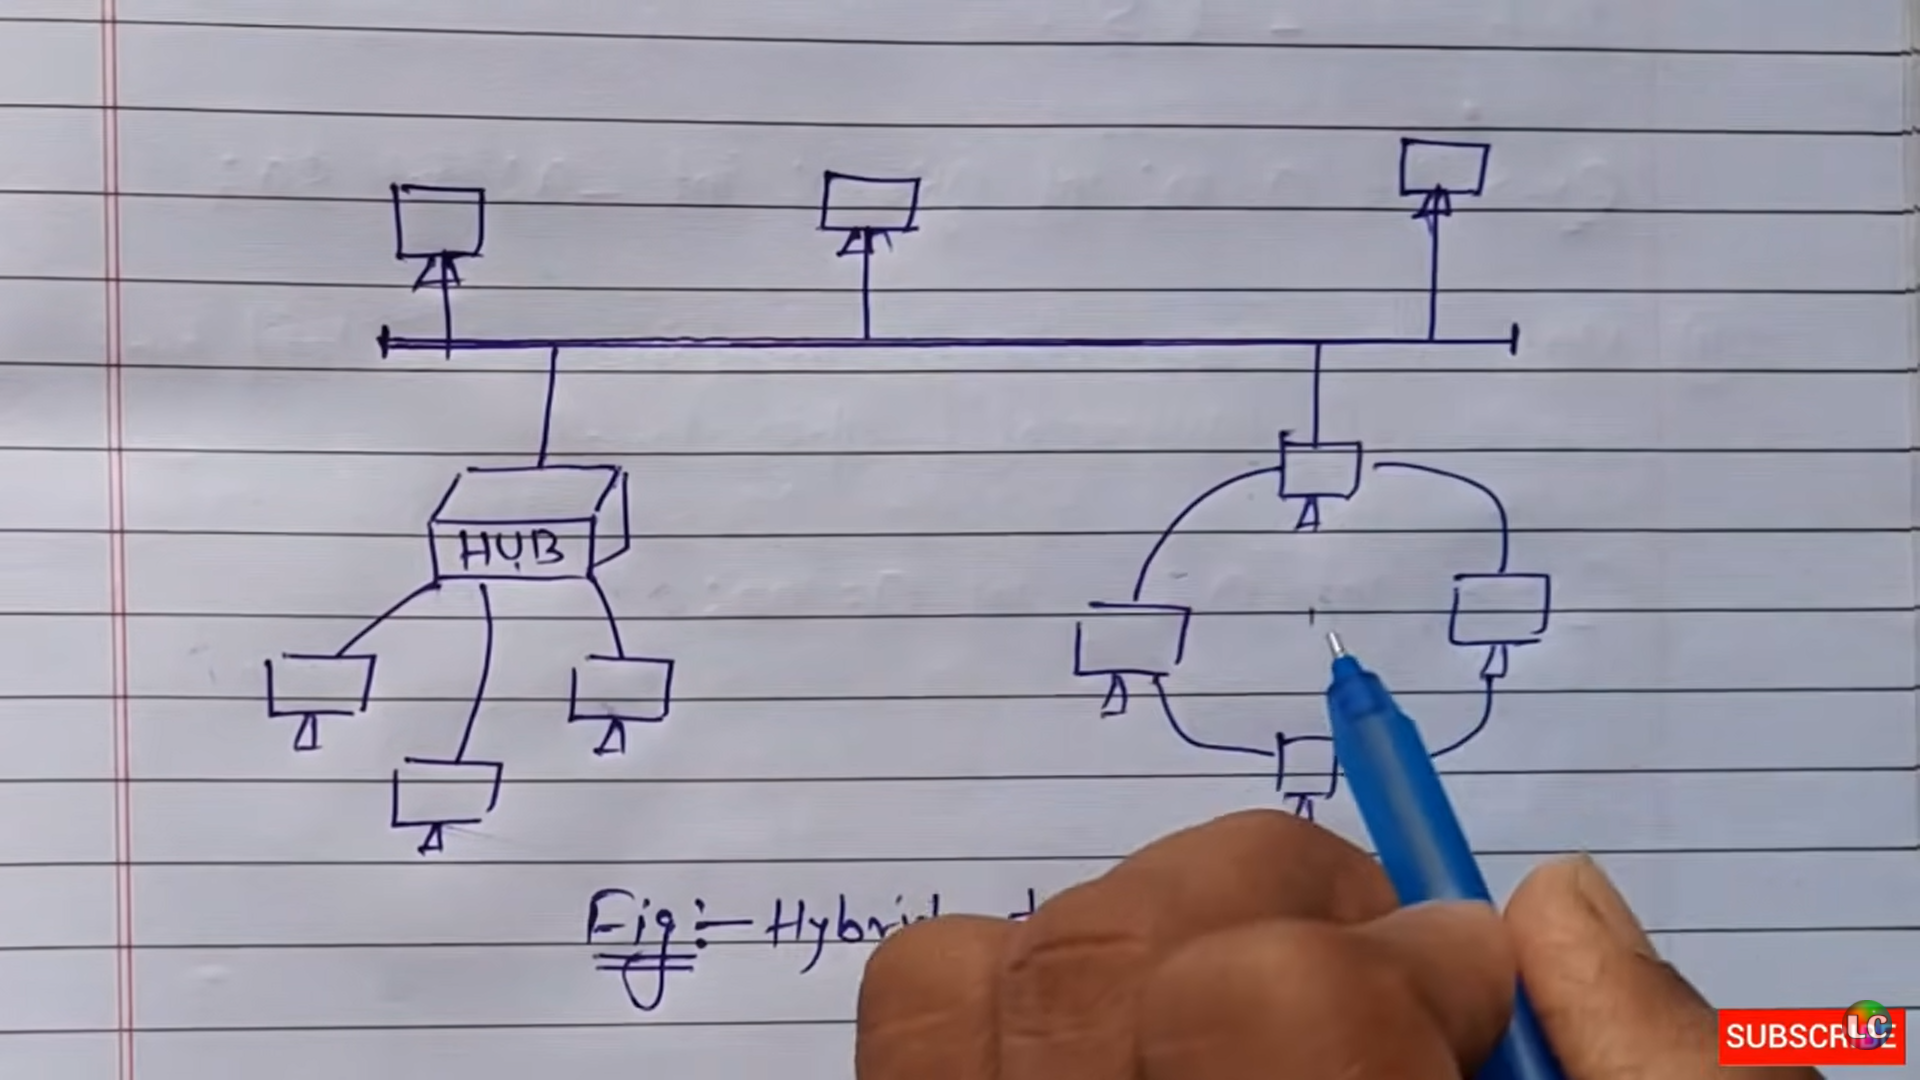 HUB
Fig:- Hybrid
SUBSCRIBE
LC